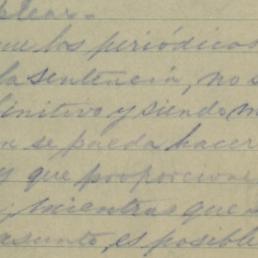 plear.
que los periódicos
la sentencia, no s
finitivo y siendo m
n se pueda hacer
y que proporcion
, mientras que
asunto, es posible